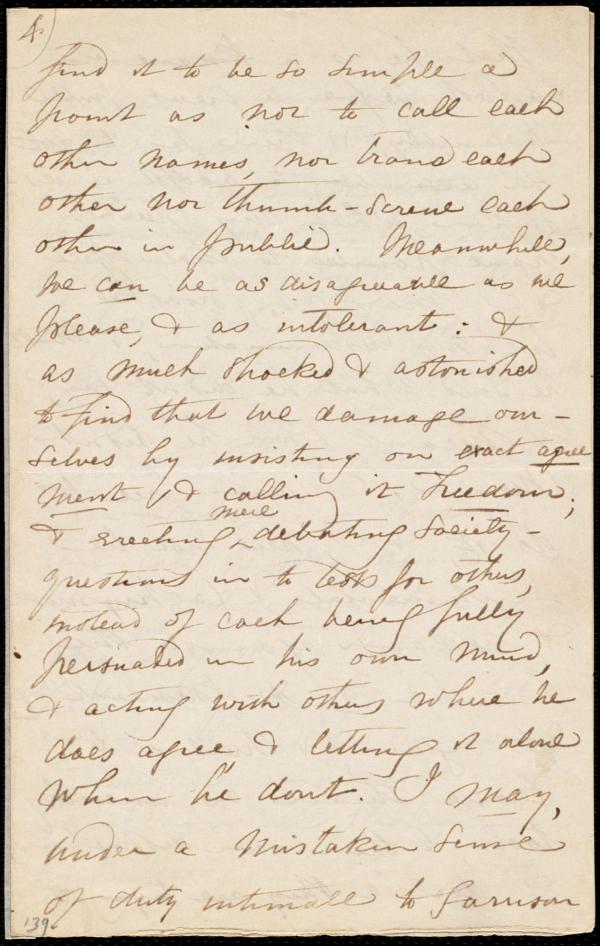 4.
find it to be so simple a
point as not to call each
other names, nor brand each
other nor thumb-screw each
other in public. Meanwhile,
we can be as disagreeable as we
please, & as intolerant: &
as much shocked & astonished
to find that we damage our-
selves by insisting on exact agree
ment, & calling it Freedom;
& erecting mere debating society-
questions in to tests for others,
instead of each being fully
persuaded in his own mind,
& acting with others where he
does agree, & letting it alone
when he dont. I may,
under a mistaken sense
of duty intimate to Garrison
139.